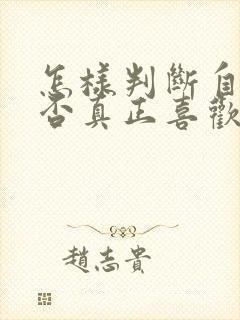 怎樣判斷自
否真正喜歡
趙志貴